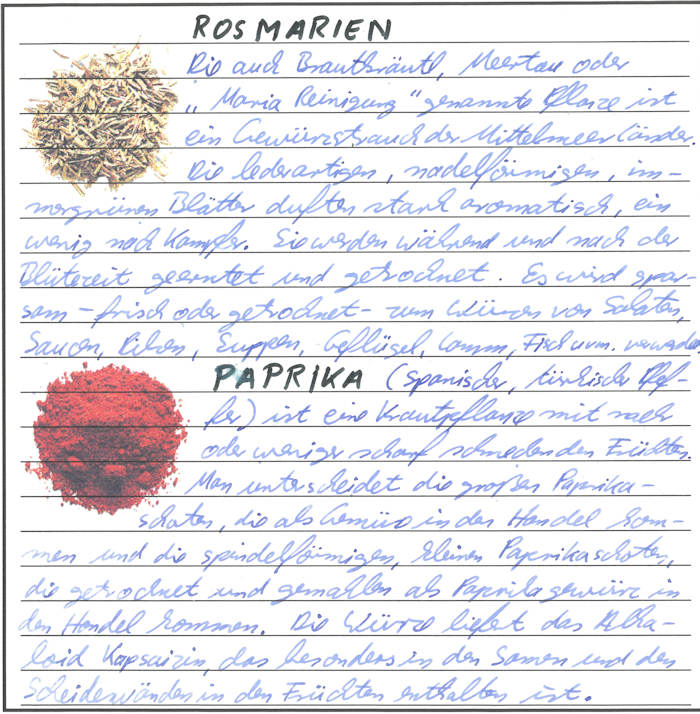 ROSMARIEN
Die auch Brautkräutl, Meertau oder
„Maria Reinigung" genannte Pflanze ist
ein Gewürzstrauch der Mittelmeerländer.
Die lederartigen, nadelförmigen, im-
mergrünen Blätter duften stark aromatisch, ein
wenig nach Kampfer. Sie werden während und nach der
Blütezeit geerntet und getrocknet. Es wird spar-
sam - frisch oder getrocknet - zum Würzen von Salaten,
Saucen, Pilzen, Suppen, Geflügel, Lamm, Fisch uvm. verwendet
PAPRIKA (spanischer, türkischer Pfef-
fer) ist eine Krautpflanze mit mehr
oder weniger scharf schmeckenden Früchten.
Man unterscheidet die großen Paprika-
schoten, die als Gemüse in den Handel kom-
men und die spindelförmigen, kleinen Paprikaschoten,
die getrocknet und gemahlen als Paprikagewürz in
den Handel kommen. Die Würze liefert das Alka-
loid Kapsaizin, das besonders in den Samen und den
Scheidewänden in den Früchten enthalten ist.